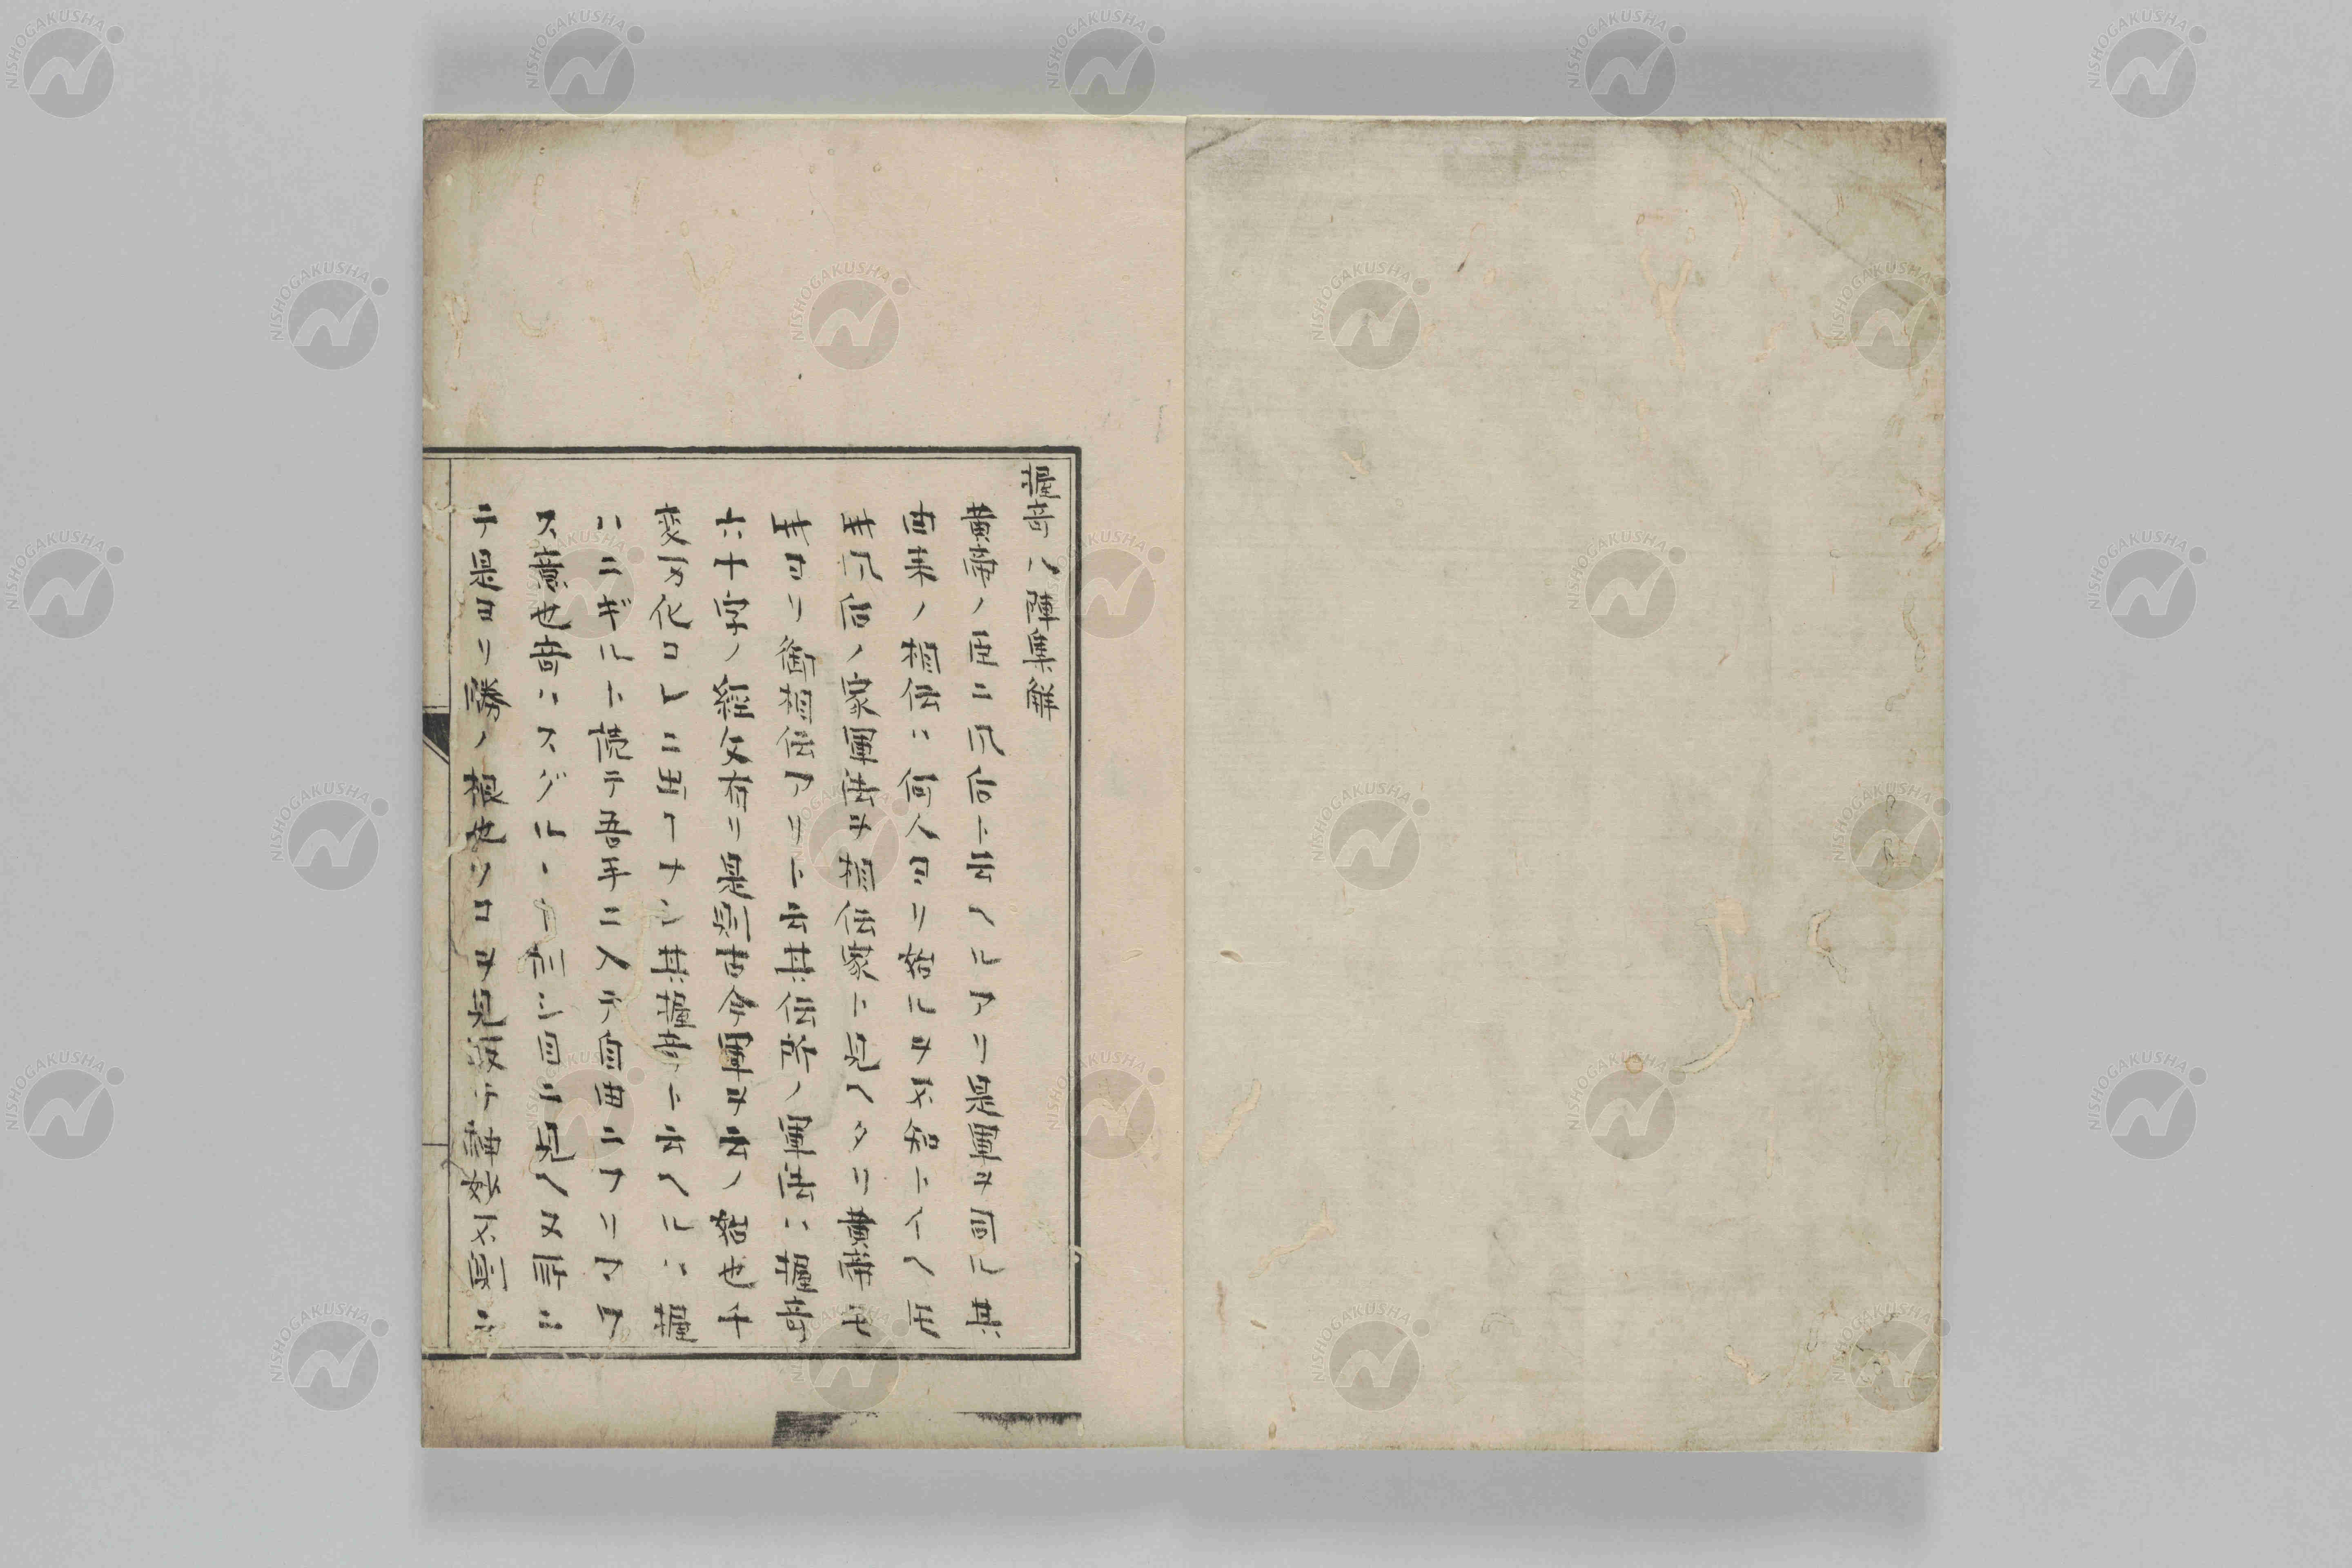 握奇八陣集解
黄帝ノ臣ニ风后ト云ヘルアリ是軍ヲ司ル其
由来ノ相伝ハ何人ヨリ始ルヲ不知トイヘモ
其风后ノ家軍法ヲ相伝家ト見ヘタリ黄帝モ
其ヨリ御相伝アリト云其伝所ノ軍法ハ握奇
六十字ノ経文有リ是則古今軍ヲ云ノ始也千
変万化コレニ出ヿナシ其握奇ト云ヘルハ握
ハニギルト読テ吾手ニ入テ自由ニナリマワ
ス意也奇ハスグルヽト訓シ目ニ見ヘヌ所ニ
テ是ヨリ勝ノ根也ソコヲ見 神妙不測ニ
NISHOGAKUSHA